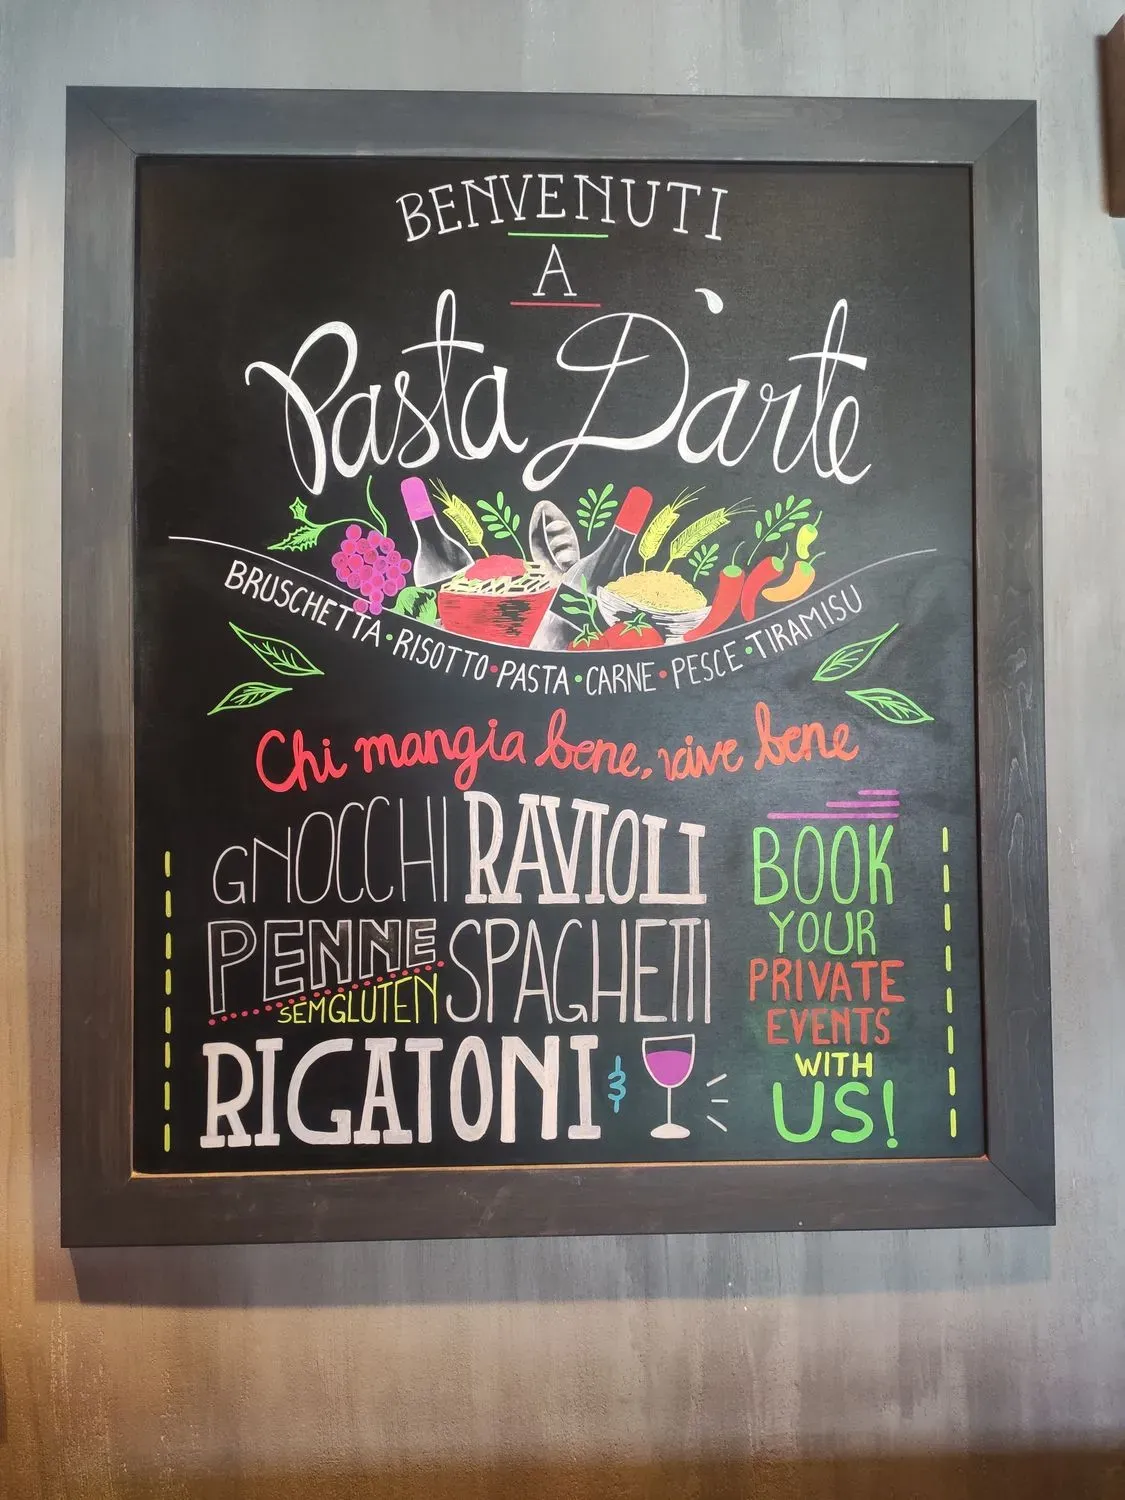 BENVENUTI
A
Pasta D'arte
BRUSCHETTA • RISOTTO • PASTA • CARNE • PESCE • TIRAMISU
Chi mangia bene, vive bene
GNOCCHI RAVIOLI
PENNE SPAGHETTI
SEM GLUTEN
RIGATONI &
BOOK
YOUR
PRIVATE
EVENTS
WITH
US!